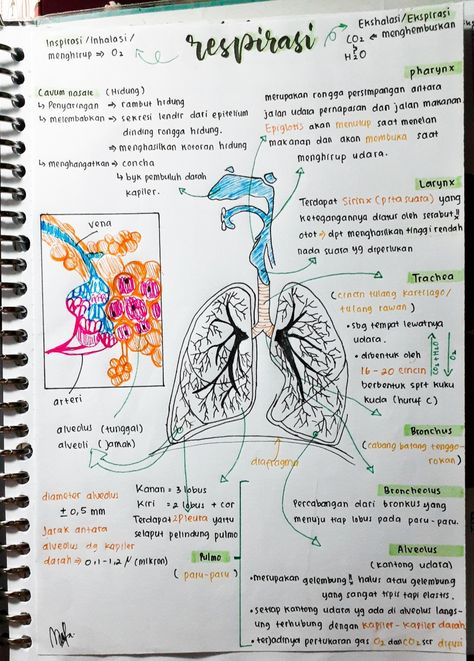 respirasi
Inspirasi/Inhalasi/
menghirup ⇒ O₂
Ekshalasi/Ekspirasi
CO₂ ⇒ menghembuskan
H₂O
Cavum nasale (Hidung)
↳ Penyaringan ⇒ rambut hidung
↳ melembabkan ⇒ sekresi lendir dari epitelium
dinding rongga hidung.
⇒ menghasilkan kotoran hidung
↳ menghangatkan ⇒ concha
↳ byk pembuluh darah
kapiler.
pharynx
merupakan rongga persimpangan antara
jalan udara pernapasan dan jalan makanan.
Epiglotis akan menutup saat menelan
makanan dan akan membuka saat
menghirup udara.
Larynx
Terdapat Sirinx (pita suara) yang
ketegangannya diatur oleh serabut²
otot ⇒ dpt menghasilkan tinggi rendah
nada suara yg diperlukan
Trachea
(cincin tulang kartilago/
tulang rawan)
• sbg tempat lewatnya
udara.
• dibentuk oleh
16 - 20 cincin
berbentuk sprt kuku
kuda (huruf C)
CO₂ + H₂O
O₂
vena
arteri
alveolus (tunggal)
alveoli (jamak)
diafragma
Bronchus
(cabang batang tenggo-
rokan)
diameter alveolus
± 0,5 mm
Jarak antara
alveolus dg kapiler
darah ⇒ 0,1 - 1,2 μ (mikron)
Kanan = 3 lobus
Kiri = 2 lobus + cor
Terdapat 2 Pleura yaitu
selaput pelindung pulmo
Pulmo
(paru-paru)
Broncheolus
Percabangan dari bronkus yang
menuju tiap lobus pada paru-paru.
Alveolus
(kantong udara)
• merupakan gelembung² halus atau gelembung
yang sangat tipis tapi elastis.
• setiap kantong udara yg ada di alveolus langs-
ung terhubung dengan kapiler-kapiler darah
• terjadinya pertukaran gas O₂ dan CO₂ scr difusi